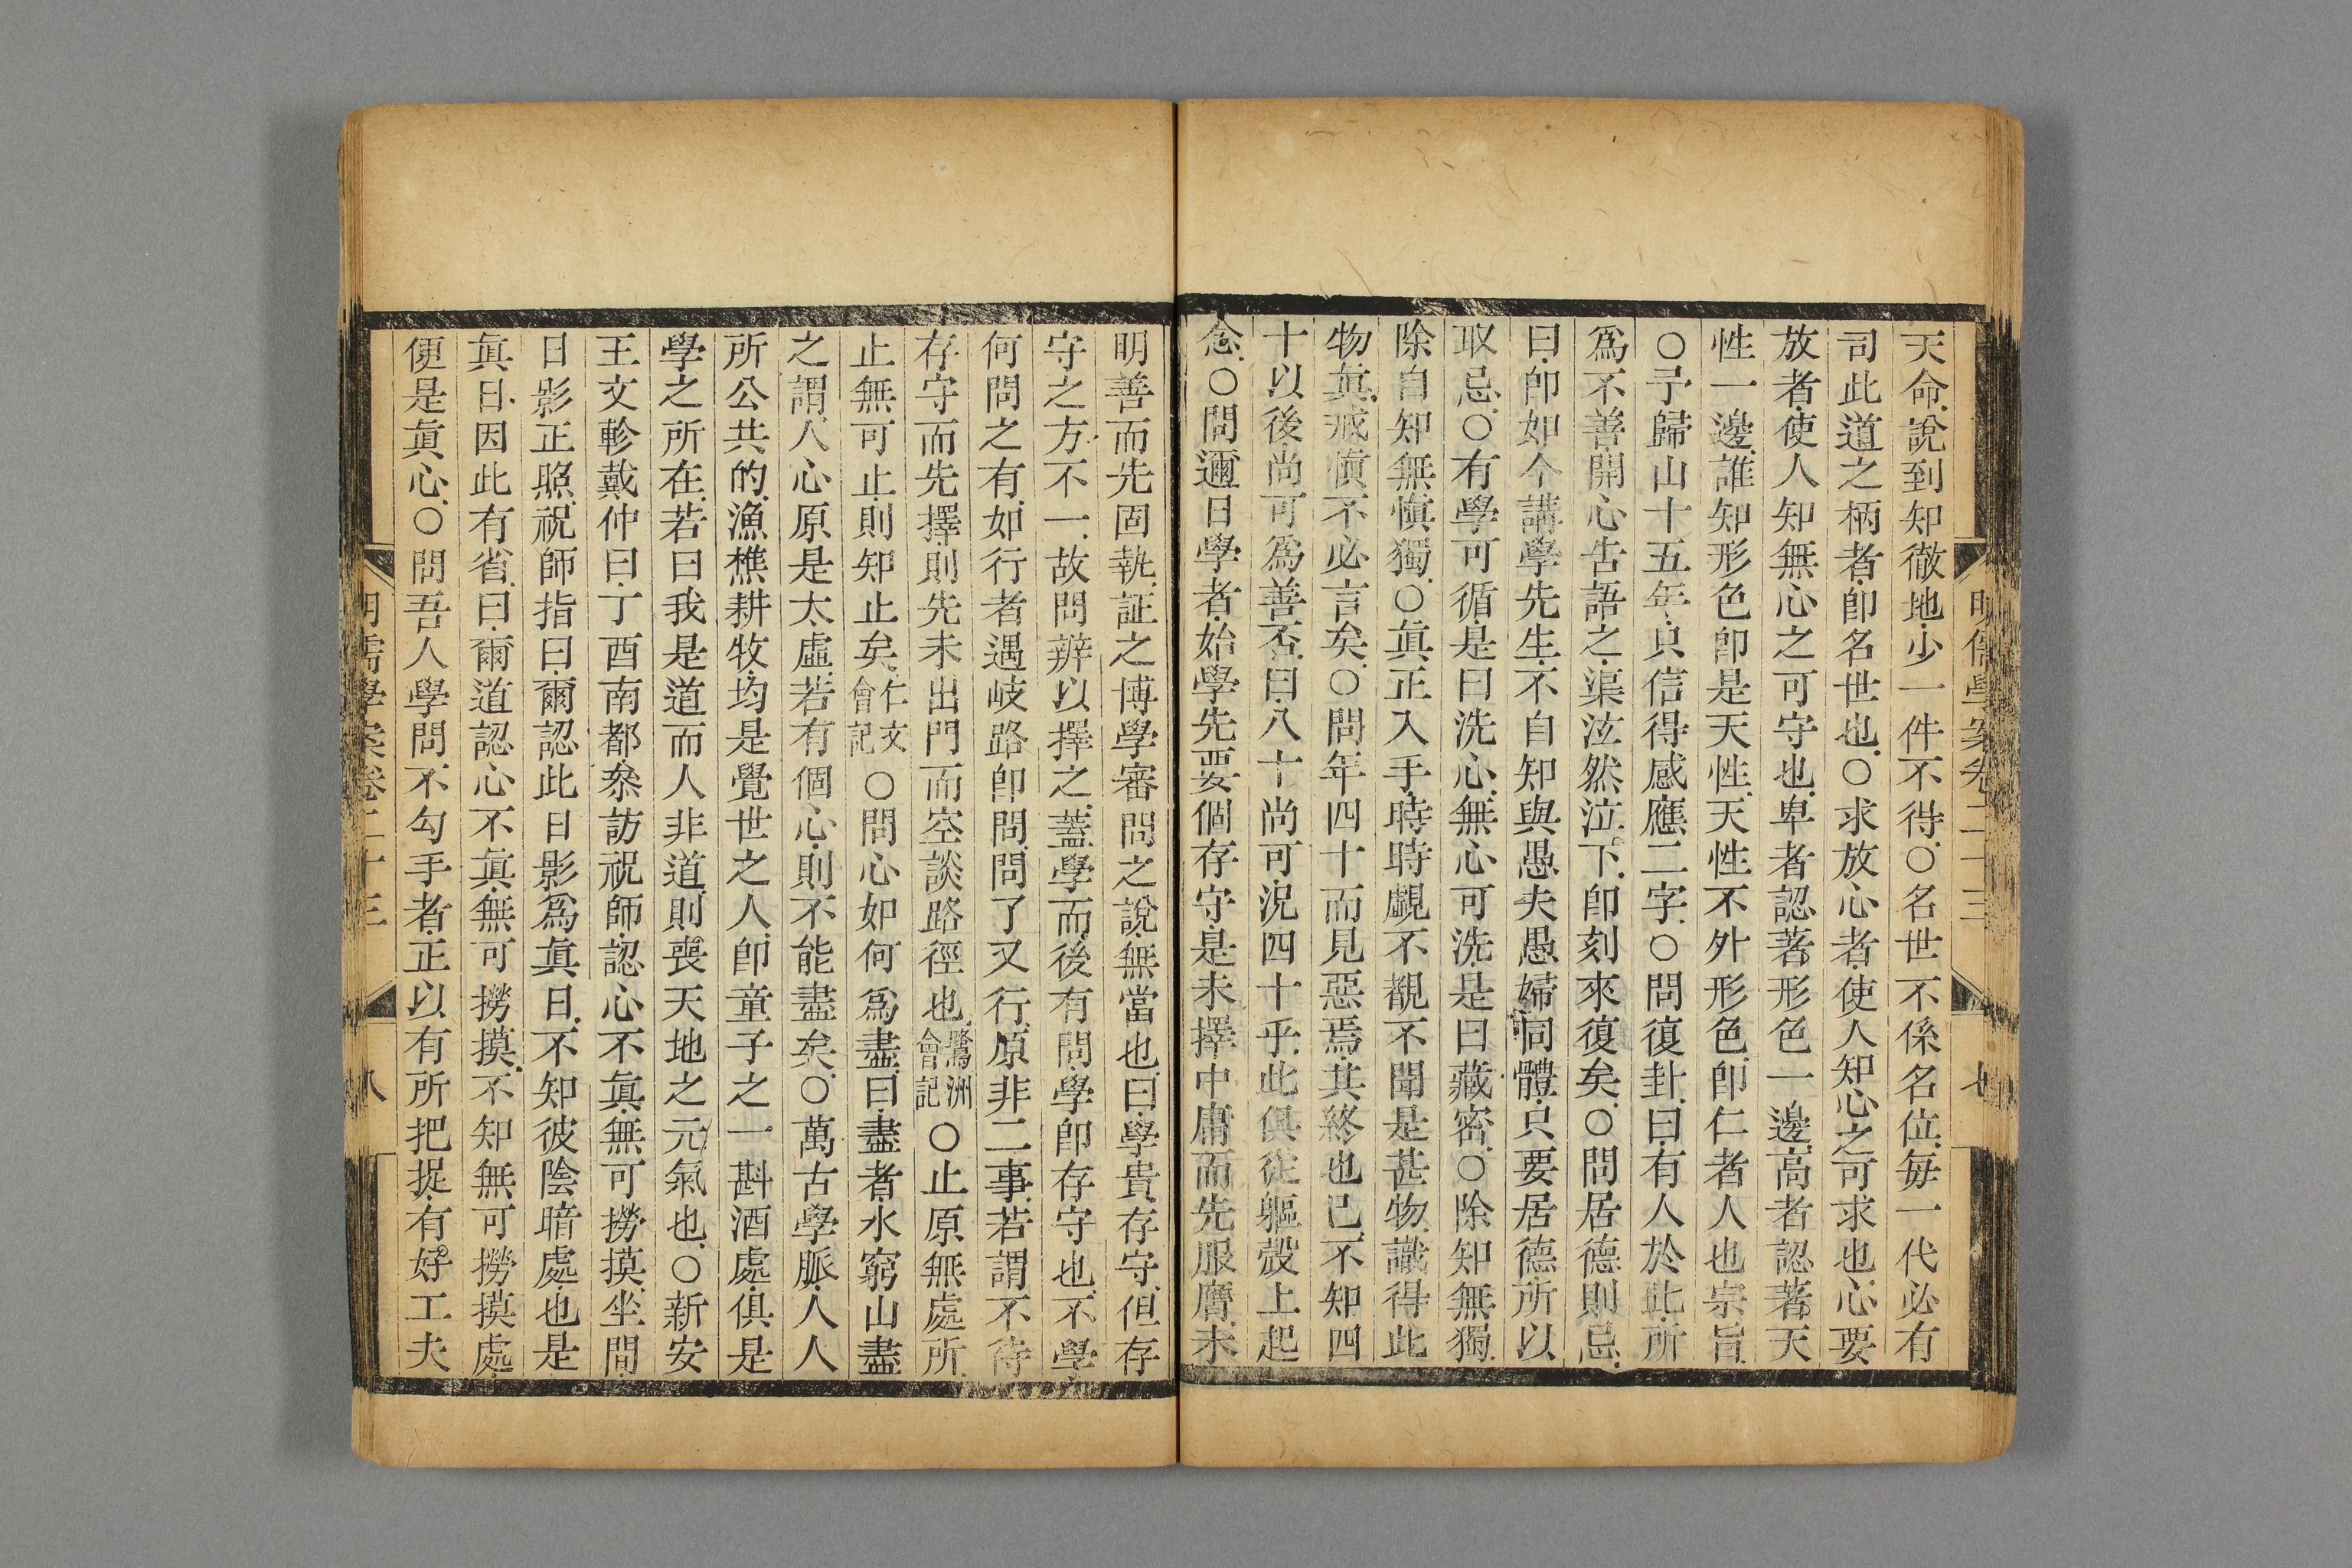 明儒學案卷二十三 七
天命說到知徹地少一件不得○名世不係名位每一代必有
司此道之柄者卽名世也○求放心者使人知心之可求也心要
放者使人知無心之可守也卑者認著形色一邊高者認著天
性一邊誰知形色卽是天性天性不外形色卽仁者人也宗旨
○予歸山十五年只信得感應二字○問復卦曰有人於此所
爲不善開心告語之渠泫然泣下卽刻來復矣○問居德則忌
曰卽如今講學先生不自知與愚夫愚婦同體只要居德所以
取忌○有學可循是曰洗心無心可洗是曰藏密○除知無獨
除自知無愼獨○眞正入手時時覷不覩不聞是甚物識得此
物眞戒愼不必言矣○問年四十而見惡焉其終也已不知四
十以後尚可爲善否曰八十尚可況四十乎此俱從軀殼上起
念○問邇日學者始學先要個存守是未擇中庸而先服膺未
明善而先固執証之博學審問之說無當也曰學貴存守但存
守之方不一故問辨以擇之蓋學而後有問學卽存守也不學
何問之有如行者遇岐路卽問問了又行原非二事若謂不待
存守而先擇則先未出門而空談路徑也鷺洲會記○止原無處所
止無可止則知止矣仁文會記○問心如何爲盡曰盡者水窮山盡
之謂人心原是太虛若有個心則不能盡矣○萬古學脈人人
所公共的漁樵耕牧均是覺世之人卽童子之一斟酒處俱是
學之所在若曰我是道而人非道則喪天地之元氣也○新安
王文軫戴仲曰丁酉南都叅訪祝師認心不眞無可撈摸坐間
日影正照祝師指曰爾認此日影爲眞日不知彼陰暗處也是
眞日因此有省曰爾道認心不眞無可撈摸不知無可撈摸處
便是眞心○問吾人學問不勾手者正以有所把捉有好工夫
明儒學案卷二十三 八